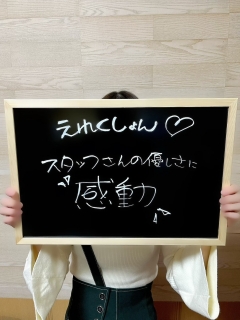 えれくしょん♡
スタッフさんの優しさに
感動